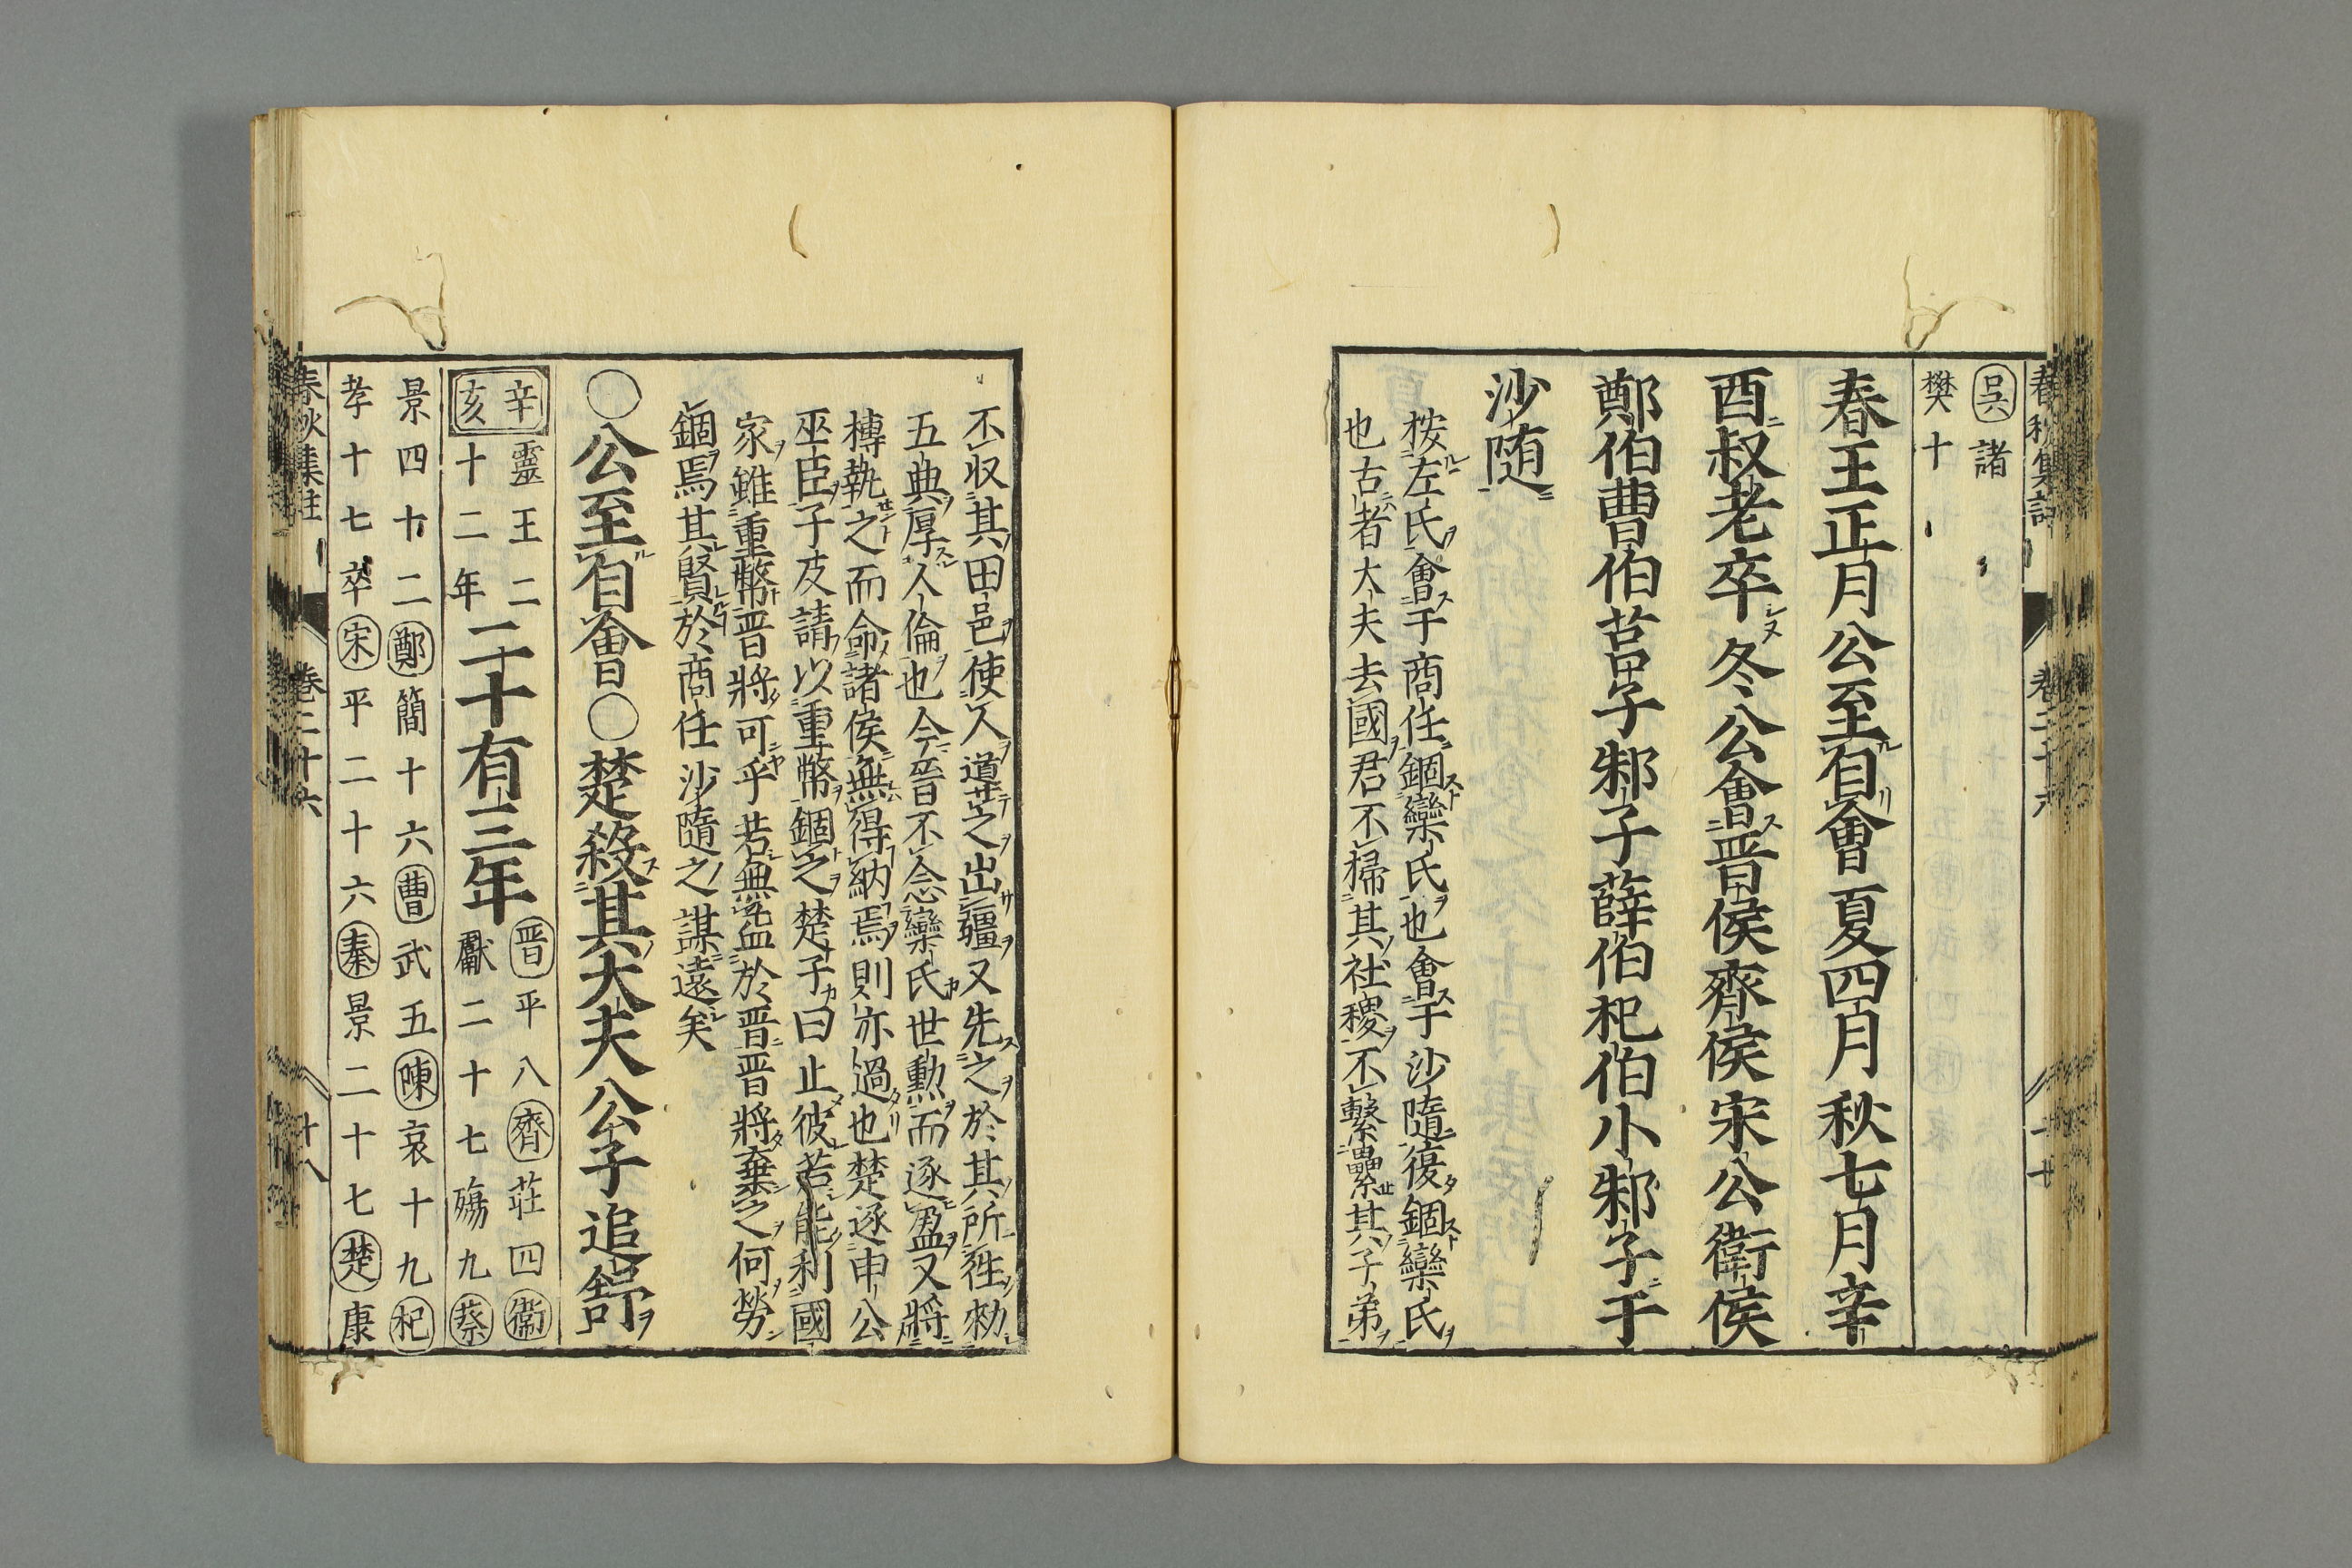 吳諸
樊十
春王正月公至自會夏四月秋七月辛
酉叔老卒冬公會晉侯齊侯宋公衛侯
鄭伯曹伯莒子邾子薛伯杞伯小邾子于
沙随
按左氏會于商任錮欒氏也會于沙隨復錮欒氏
也古者大夫去國君不掃其社稷不繫纍其子弟
不収其田邑使人道之出疆又先之於其所往勑
五典厚人倫也今晉不念欒氏世勲而逐盈又將
搏執之而命諸侯無得納焉則亦過也楚逐申公
巫臣子反請以重幣錮之楚子曰止彼若能利國
家雖重幣晉將可乎若無益於晉晉將棄之何勞
錮焉其賢於商任沙隨之謀遠矣
○公至自會○楚殺其大夫公子追舒
辛亥靈王二十二年二十有三年晉平八齊莊四衞獻二十七殤九蔡
景四十二鄭簡十六曹武五陳哀十九杞
孝十七卒宋平二十六秦景二十七楚康
春秋集註
巻二十六
十八